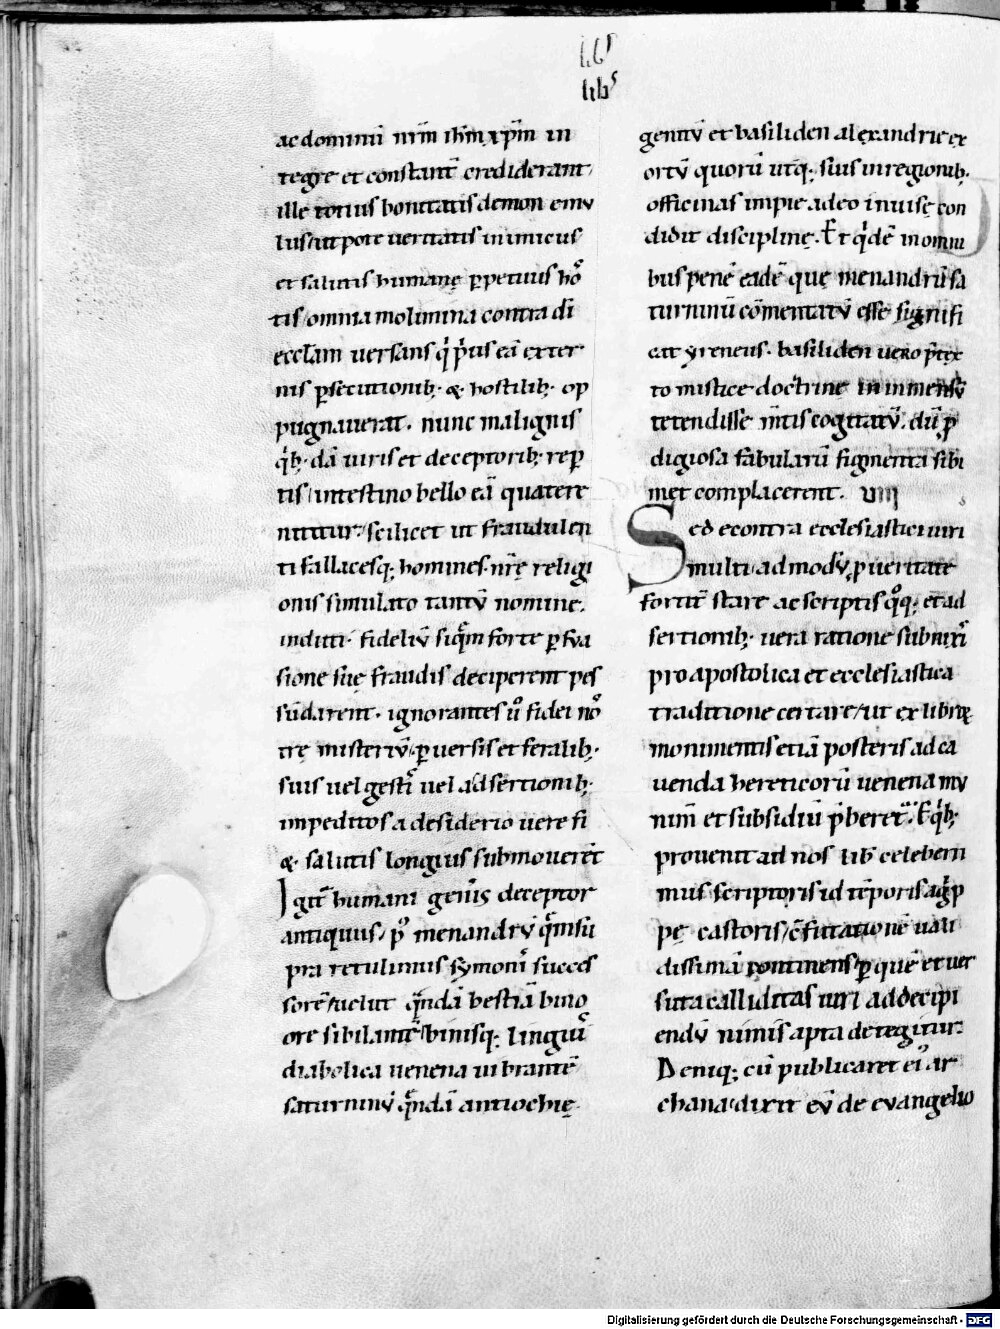 lib͛
lib͛
ac dominū nr̄m ihm̄ xp̄m in
tegre et constant̄ crediderant
ille totius bonitatis demon emu
lus / ut pote ueritatis inimicus
et salutis humanę ꝑpetuus ho᷒
tis / omnia molimina contra di
eccl̄am uersans qͥ p͛us eā exter
nis ꝑsecutionib; & hostilib; op
pugnauerat. nunc malignis
qͥb; dā uiris et deceptorib; rep
tis / intestino bello eā quatere
nititur / scilicet ut fraudulen
ti fallacesq; homines. nr̄ę religi
onis simulato tantū nomine.
induti. fideliū siq̄m forte ꝑsua
sione suę fraudis deciperent pes
sūdarent. ignorantes u᷒ fidei no᷒
trę misteriū / ꝑuersis et feralib;
suis uel gestī uel adsertionib;
impeditos a desiderio uere fi
& salutis longius submouerēt
Igit̄ humani gen̄is deceptor
antiquus / p᷒ menandrū q̄m su
pra retulimus symoni succes
sorē / uelut q̄ndā bestiā bino
ore sibilantē / binisq; linguī᷒
diabolica uenena uibrantē
saturninū q̄ndā antiochię
gentū et basiliden alexandrię ex
ortū quorū utq; suis in regionib;
officinas impie adeo inuisę con
didit disciplinę. Et qͥdē in omni
bus pene eadē quę menandrū sa
turninū cōmentatū esse signifi
cat yreneus. basiliden uero p̄tex
to mistice doctrine in inmensū
tetendisse m̄tis cogitatū. dū ꝓ
digiosa fabularū figmenta sibi
met complacerent. VIII
Sed econtra ecclesiastici uiri
multi admodū ꝓ ueritate
fortit̄ stare ac scriptis q᷒q; et ad
sertionib; uera ratione subnixi
pro apostolica et ecclesiastica
traditione certare / ut ex librꝝ
monimentis etiā posteris ad ca
uenda hereticorū uenena mu
nim̄ et subsidiū p̄beret̄. Eqͥb;
prouenit ad nos lib͛ celeberri
mus scriptoris id tēporis agͥp
pę castoris / c̄futationē uali
dissimā continens / ꝑ quē et uer
suta calliditas uiri ad decipi
endū nimis apta detegitur.
Deniq; cū publicaret ei᷒ ar
chana / dixit eū de euangelio
Digitalisierung gefördert durch die Deutsche Forschungsgemeinschaft - DFG